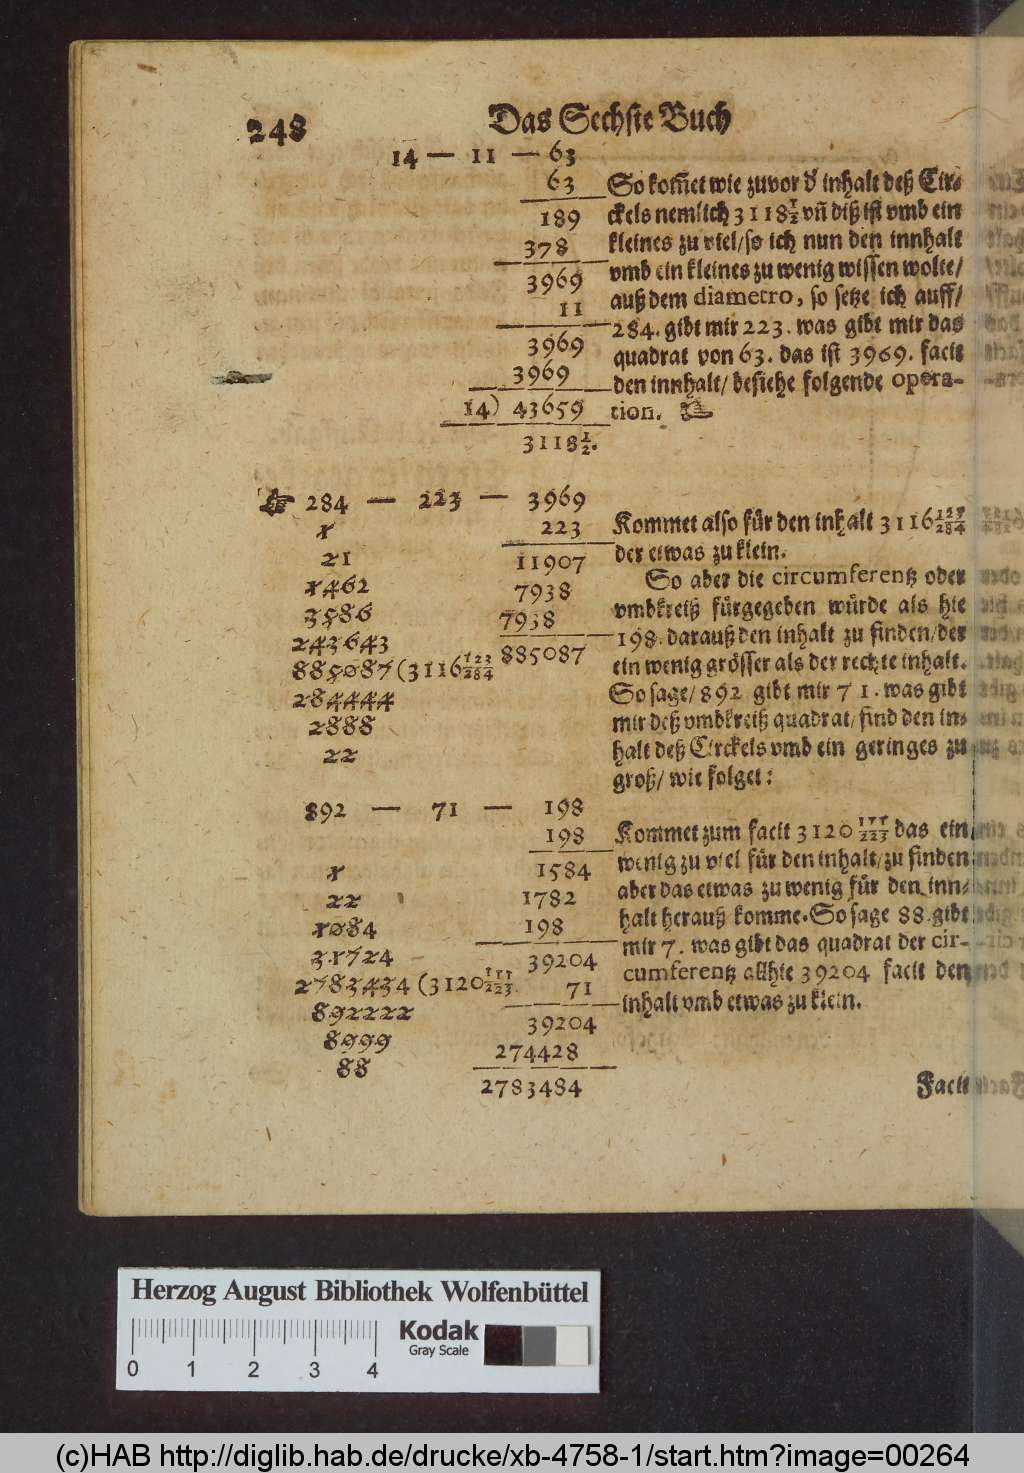 248
Das Sechste Buch
14 — 11 — 63
63
189
378
3969
11
3969
3969
14) 43659
3118 1/2.
So kom̃et wie zuvor d' inhalt deß Cir-
ckels nemlich 3118 1/2 vñ diß ist vmb ein
kleines zu viel/ so ich nun den innhalt
vmb ein kleines zu wenig wissen wolte/
auß dem diametro, so setze ich auff/
284. gibt mir 223. was gibt mir das
quadrat von 63. das ist 3969. facit
den innhalt/ besiehe folgende opera-
tion. ☞
☞ 284 — 223 — 3969
1
21
1462
3586
243643
885087 (3116 123/284
284444
2888
22
223
11907
7938
7938
885087
Kommet also für den inhalt 3116 123/284
der etwas zu klein.
So aber die circumferentz oder
vmbkreiß fürgegeben würde als hie
198. darauß den inhalt zu finden/ der
ein wenig grösser als der rechte inhalt.
So sage/ 892 gibt mir 71. was gibt
mir deß vmbkreiß quadrat/ find den in-
halt deß Circkels vmb ein geringes zu
groß/ wie folget:
892 — 71 — 198
1
22
1084
31724
2783434 (3120 111/223.
892222
8999
88
198
1584
1782
198
39204
71
39204
274428
2783484
Kommet zum facit 3120 111/223 das ein
wenig zu viel für den inhalt/ zu finden
aber das etwas zu wenig für den inn-
halt herauß komme. So sage 88. gibt
mir 7. was gibt das quadrat der cir-
cumferentz allhie 39204 facit den
inhalt vmb etwas zu klein.
Facit
Herzog August Bibliothek Wolfenbüttel
0 1 2 3 4
Kodak
Gray Scale
(c)HAB http://diglib.hab.de/drucke/xb-4758-1/start.htm?image=00264